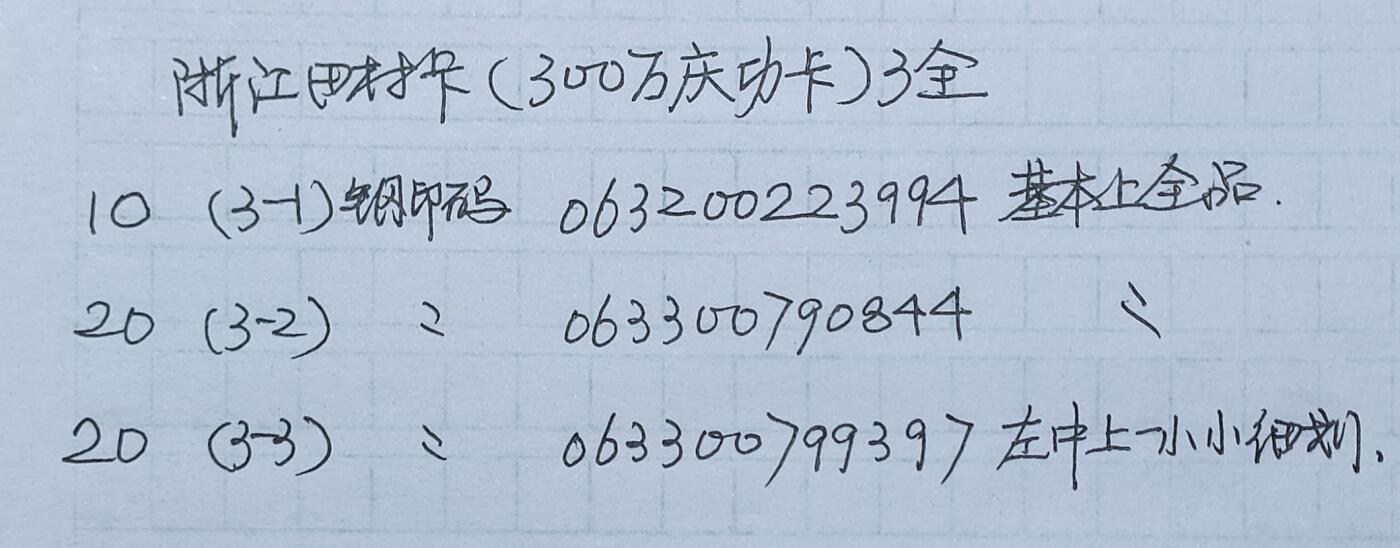 浙江田村卡(300万庆功卡)3全
10 (3-1)钢印码 063200223994 基本上全品.
20 (3-2) 〃 063300790844 〃
20 (3-3) 〃 063300799397 左中上一小小细划.